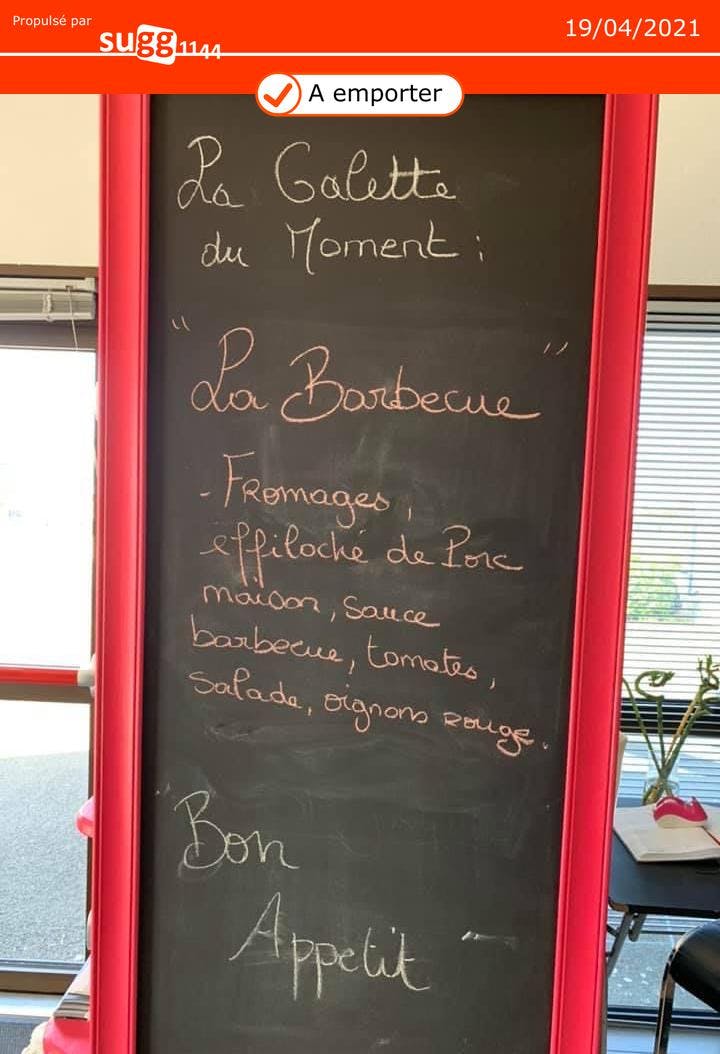 Propulsé par
sugg1144
19/04/2021
A emporter
La Galette
du Moment :
"La Barbecue"
- Fromages,
effiloché de Porc
maison, sauce
barbecue, tomates,
salade, oignons rouge.
Bon
Appetit